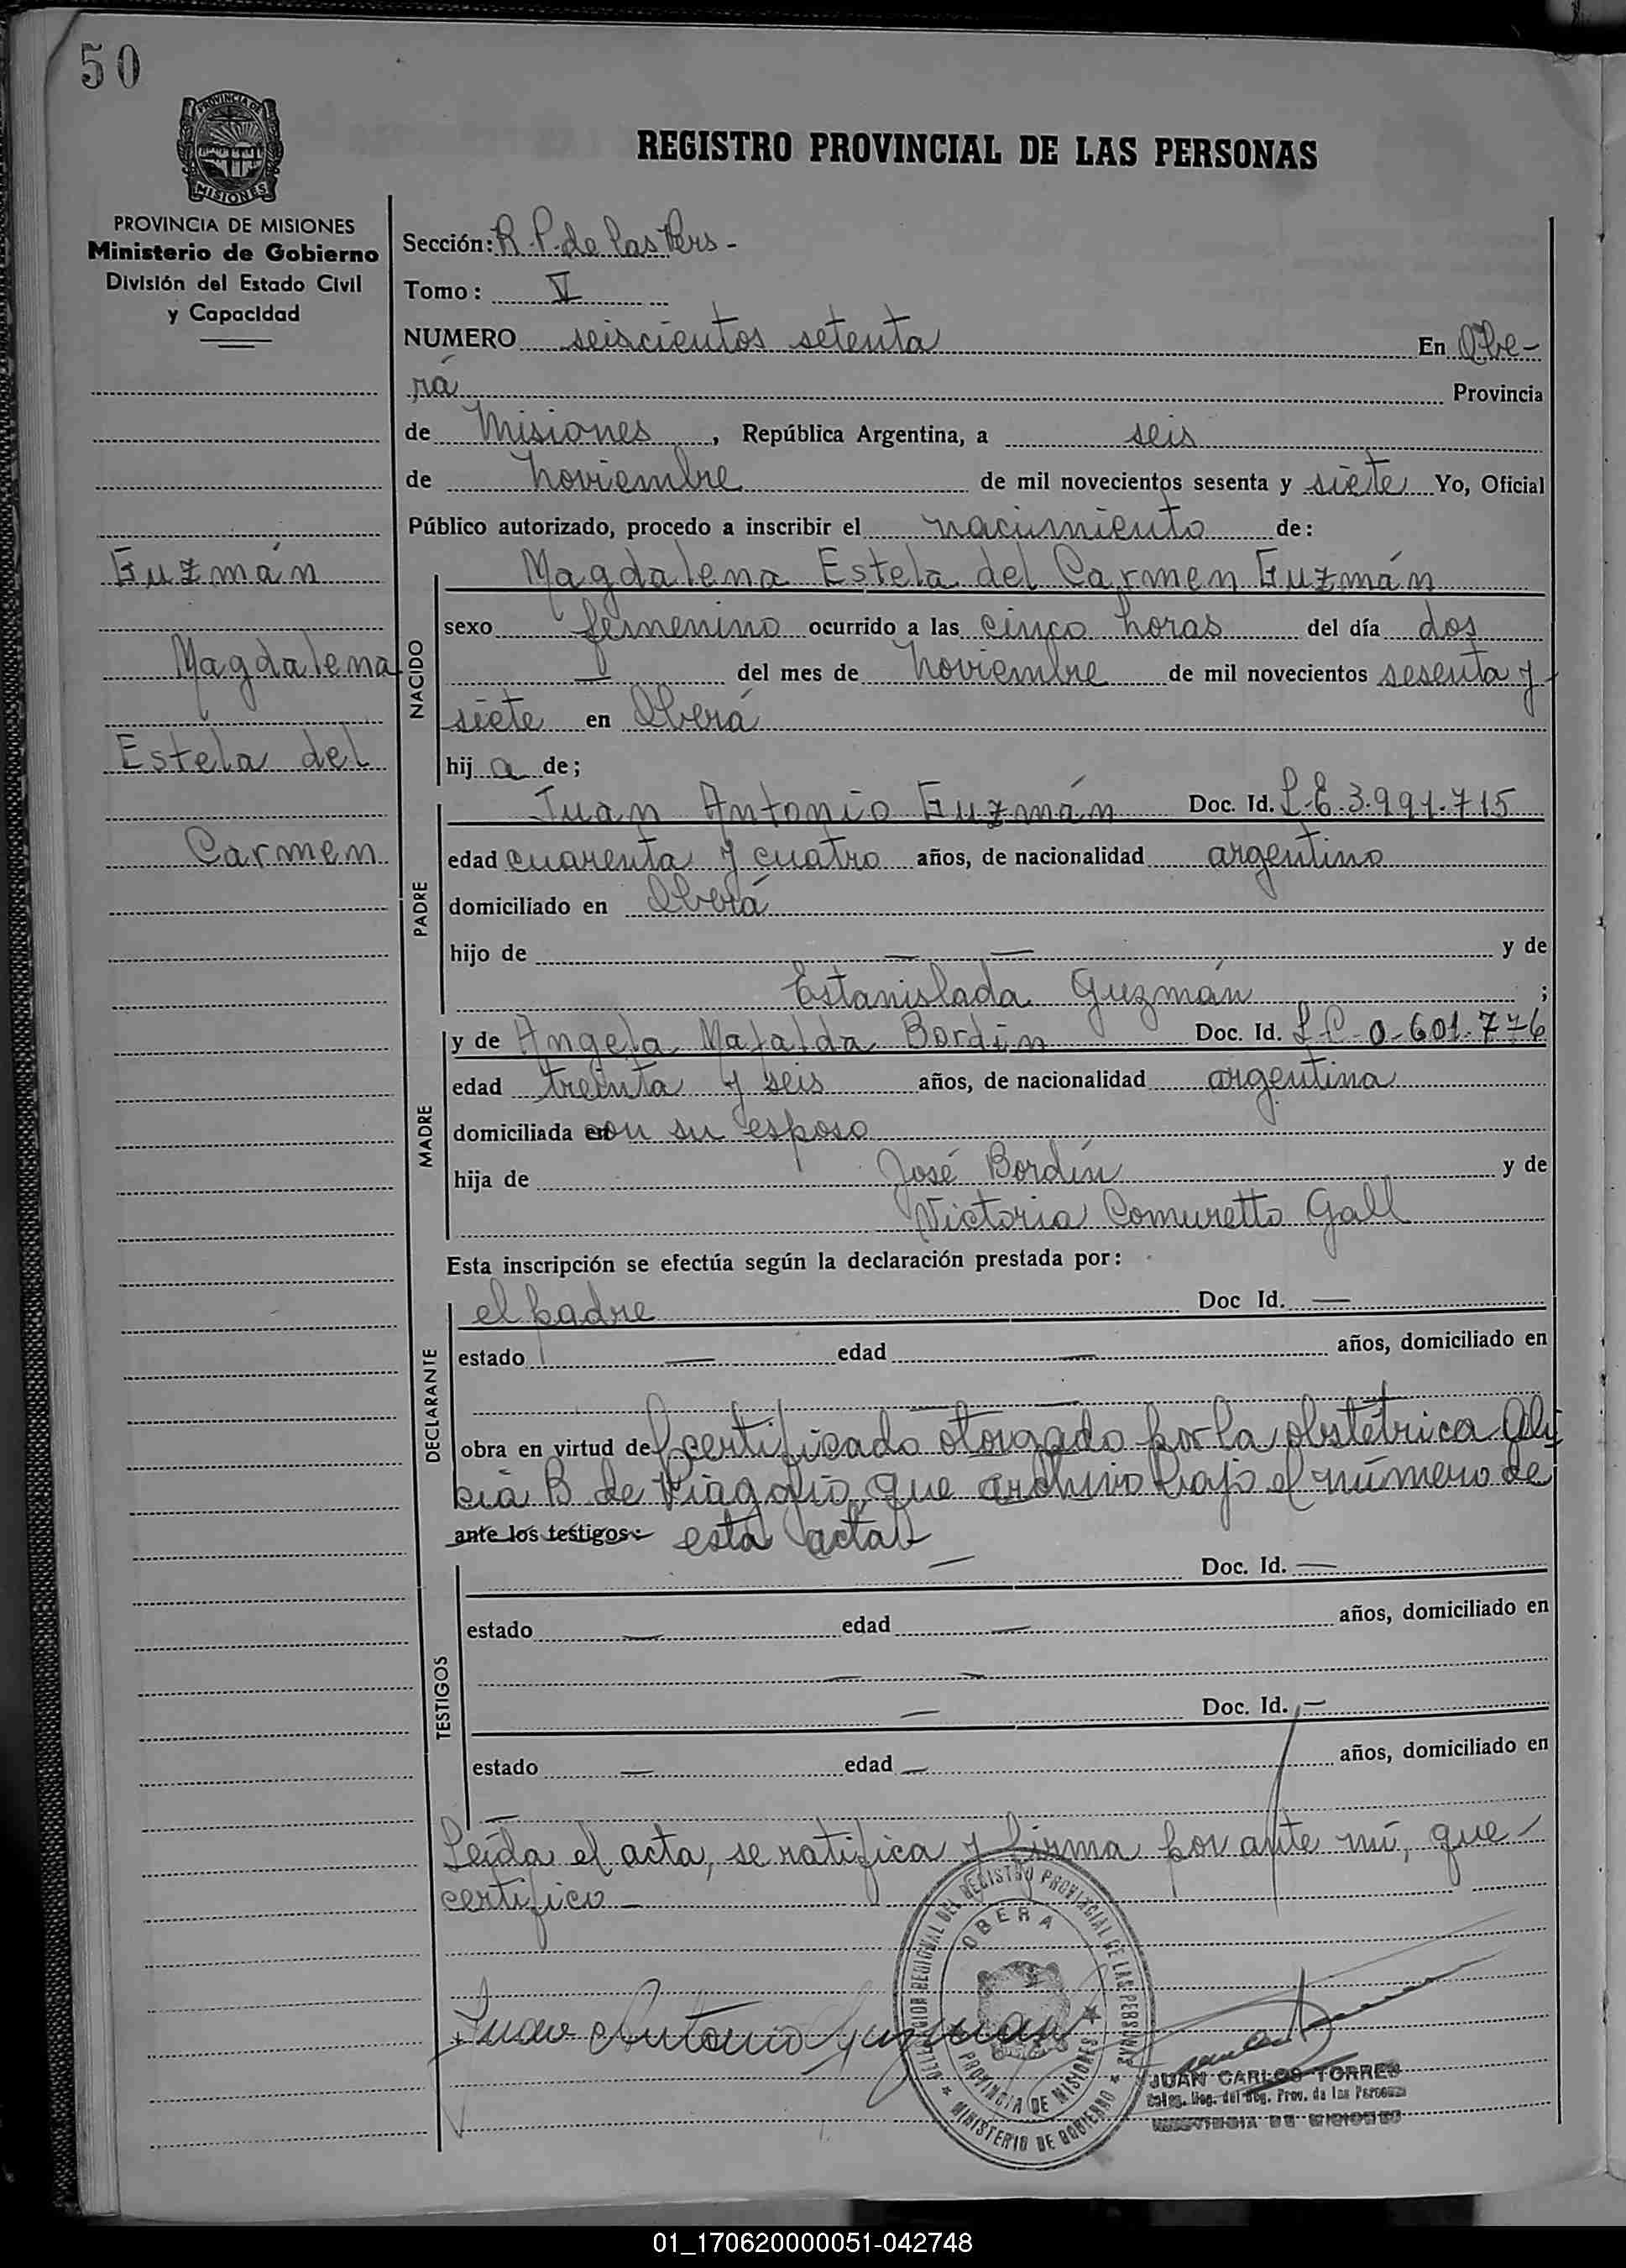 50
PROVINCIA DE
MISIONES
REGISTRO PROVINCIAL DE LAS PERSONAS
PROVINCIA DE MISIONES
Ministerio de Gobierno
División del Estado Civil
y Capacidad
Guzmán
Magdalena
Estela del
Carmen
Sección: R.P. de las Pers -
Tomo: V
NUMERO seiscientos setenta En Obe-
rá Provincia
de Misiones, República Argentina, a seis
de noviembre de mil novecientos sesenta y siete Yo, Oficial
Público autorizado, procedo a inscribir el nacimiento de:
NACIDO
Magdalena Estela del Carmen Guzmán
sexo femenino ocurrido a las cinco horas del día dos
— del mes de noviembre de mil novecientos sesenta y
siete en Oberá
hij a de;
PADRE
Juan Antonio Guzmán Doc. Id. L.E. 3.991.715
edad cuarenta y cuatro años, de nacionalidad argentino
domiciliado en Oberá
hijo de — — y de
Estanislada Guzmán ;
MADRE
y de Angela Mafalda Bordin Doc. Id. L.C. 0-601.776
edad treinta y seis años, de nacionalidad argentina
domiciliada en con su esposo
hija de José Bordín y de
Victoria Comuretto Gall
Esta inscripción se efectúa según la declaración prestada por:
DECLARANTE
el padre Doc Id. —
estado — edad — años, domiciliado en
—
obra en virtud de certificado otorgado por la obstétrica
B. de que archivo bajo el número de
ante los testigos: esta acta
TESTIGOS
— Doc. Id. —
estado — edad — años, domiciliado en
— —
— Doc. Id. —
estado — edad — años, domiciliado en
—
Leída el acta, se ratifica y firma por ante mí, que
certifico —
DELEGACION REGIONAL DEL REGISTRO PROVINCIAL DE LAS PERSONAS
OBERA
PROVINCIA DE MISIONES
MINISTERIO DE GOBIERNO
Juan Antonio Guzman
JUAN CARLOS TORRES
Deleg. Reg. del Reg. Prov. de las Personas
PROVINCIA DE MISIONES
01_170620000051-042748